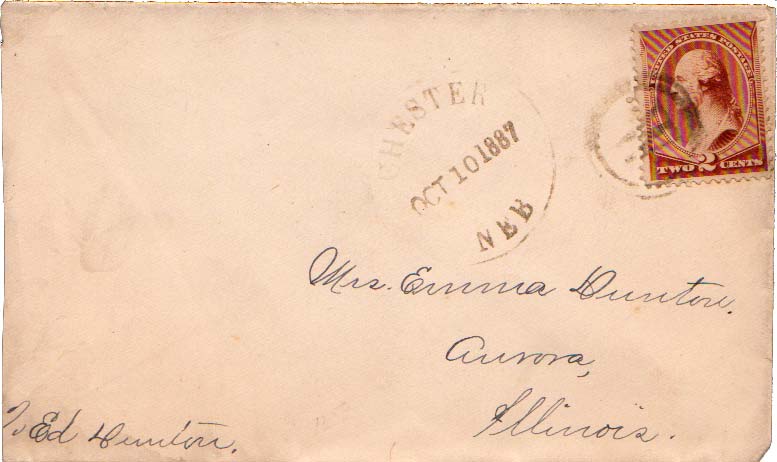 UNITED STATES POSTAGE
TWO 2 CENTS
CHESTER
OCT 10 1887
NEB
Mrs. Emma Dunton.
Aurora,
Illinois.
Ed Dunton.